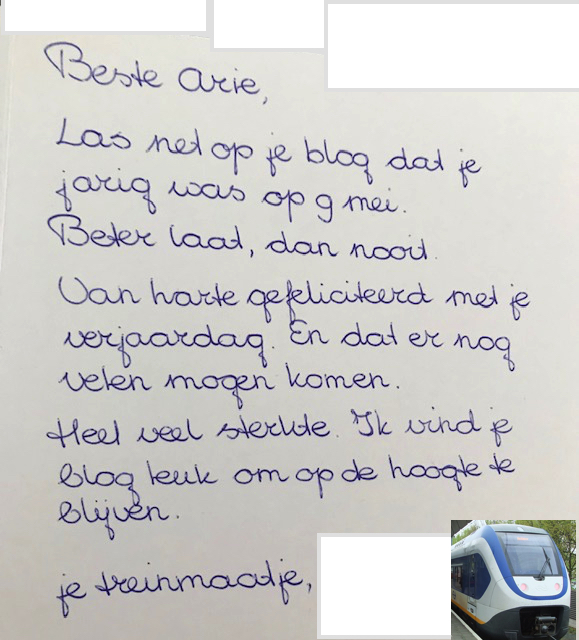 Beste Arie,
Las net op je blog dat je
jarig was op 9 mei.
Beter laat, dan nooit.
Van harte gefeliciteerd met je
verjaardag. En dat er nog
velen mogen komen.
Heel veel sterkte. Ik vind je
blog leuk om op de hoogte te
blijven.
je treinmaatje,